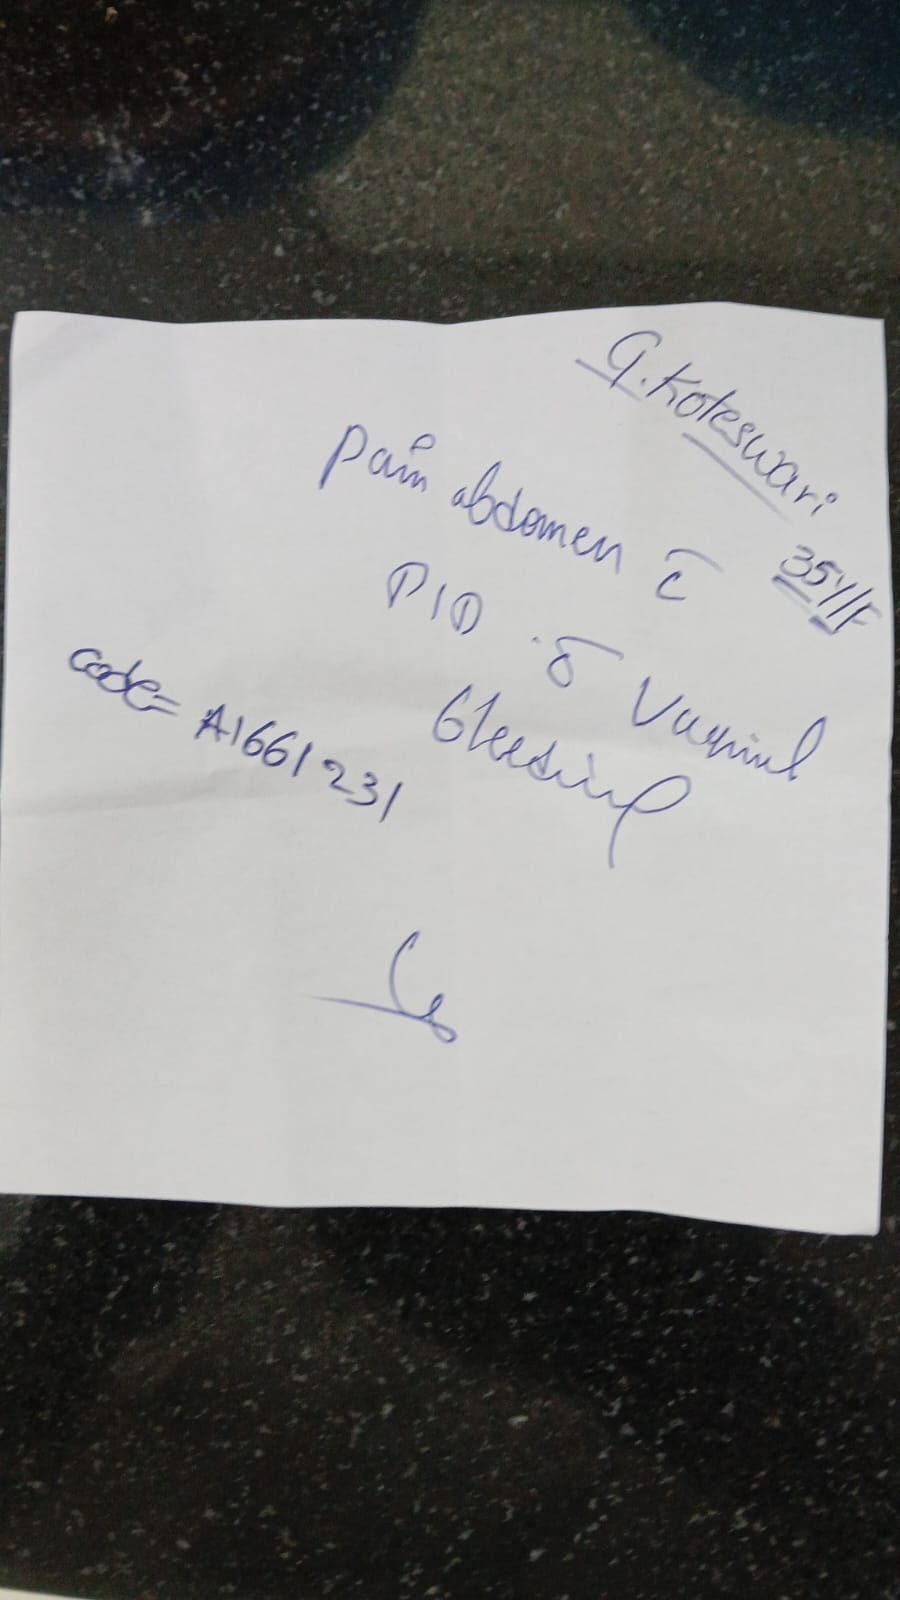 G. Koteswari
35Y/F
Pain abdomen c̄
PID c̄ Vaginal
Bleeding
code= A1661231